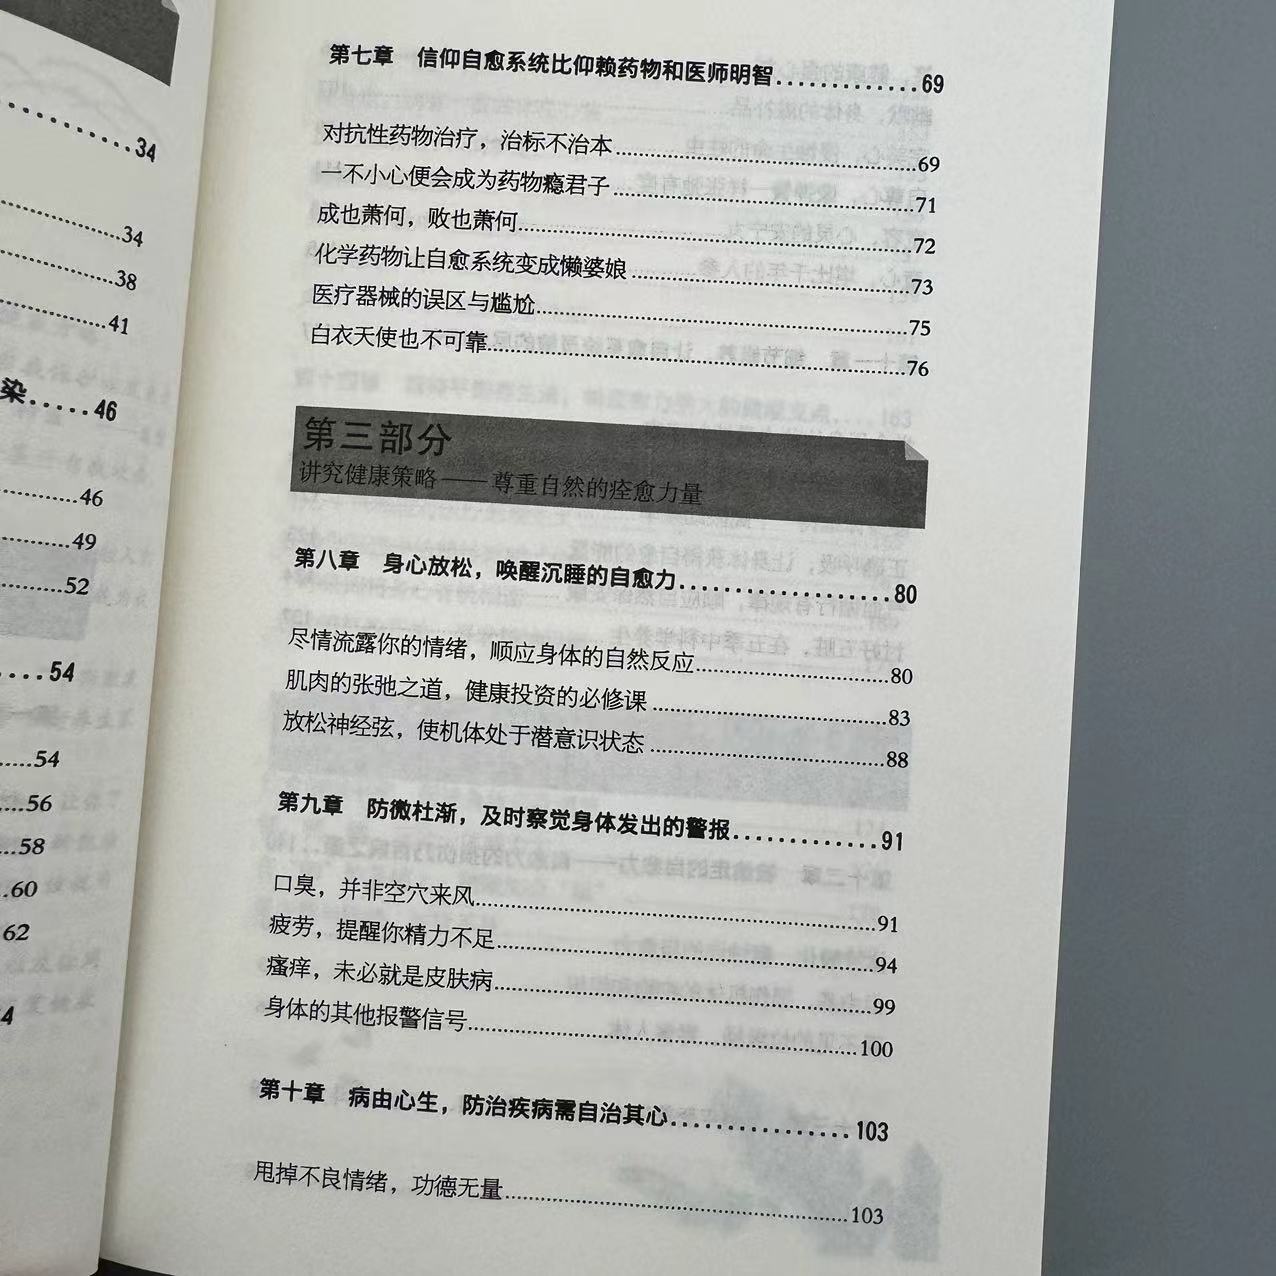 34
34
38
41
染.....46
46
49
52
54
54
56
58
60
62
第七章 信仰自愈系统比仰赖药物和医师明智............69
对抗性药物治疗，治标不治本............69
一不小心便会成为药物瘾君子............71
成也萧何，败也萧何............72
化学药物让自愈系统变成懒婆娘............73
医疗器械的误区与尴尬............75
白衣天使也不可靠............76
第三部分
讲究健康策略——尊重自然的痊愈力量
第八章 身心放松，唤醒沉睡的自愈力............80
尽情流露你的情绪，顺应身体的自然反应............80
肌肉的张弛之道，健康投资的必修课............83
放松神经弦，使机体处于潜意识状态............88
第九章 防微杜渐，及时察觉身体发出的警报............91
口臭，并非空穴来风............91
疲劳，提醒你精力不足............94
瘙痒，未必就是皮肤病............99
身体的其他报警信号............100
第十章 病由心生，防治疾病需自治其心............103
甩掉不良情绪，功德无量............103